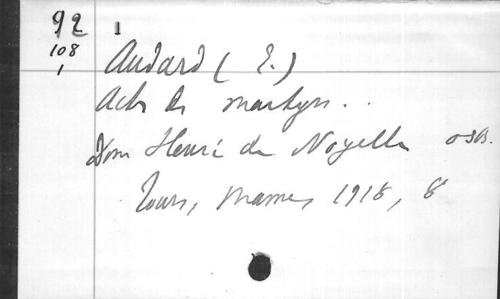 92 1
108
1
Audard (E.)
Acts des martyrs . .
Dom Henri de Noyelle osb.
Tours, Mame, 1918, 8